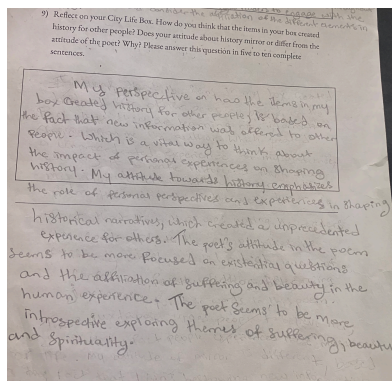 the affiliation of the different elements in
9) Reflect on your City Life Box. How do you think that the items in your box created
history for other people? Does your attitude about history mirror or differ from the
attitude of the poet? Why? Please answer this question in five to ten complete
sentences.
My perspective on how the items in my
box created history for other people is based on
the fact that new information was offered to other
people. Which is a vital way to think about
the impact of personal experiences on shaping
history. My attitude towards history emphasizes
the role of personal perspectives and experiences in shaping
historical narratives, which created a unprecedented
experience for others. The poet's attitude in the poem
seems to be more focused on existential questions
and the affiliation of suffering and beauty in the
human experience. The poet seems to be more
introspective exploring themes of suffering, beauty
and spirituality.